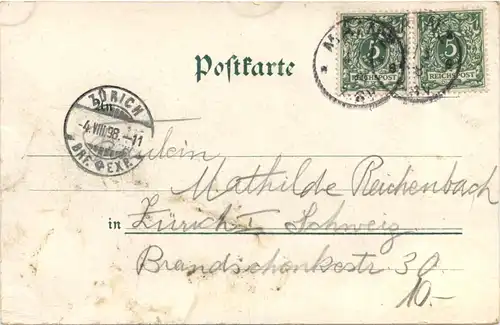 5 5
REICHSPOST REICHSPOST
Postkarte
ZÜRICH
-4.VIII.98.-11
BRF. EXP.
Fräulein
Mathilde Reichenbach
in Zürich I Schweiz
Brandschenkestr 30
10.-